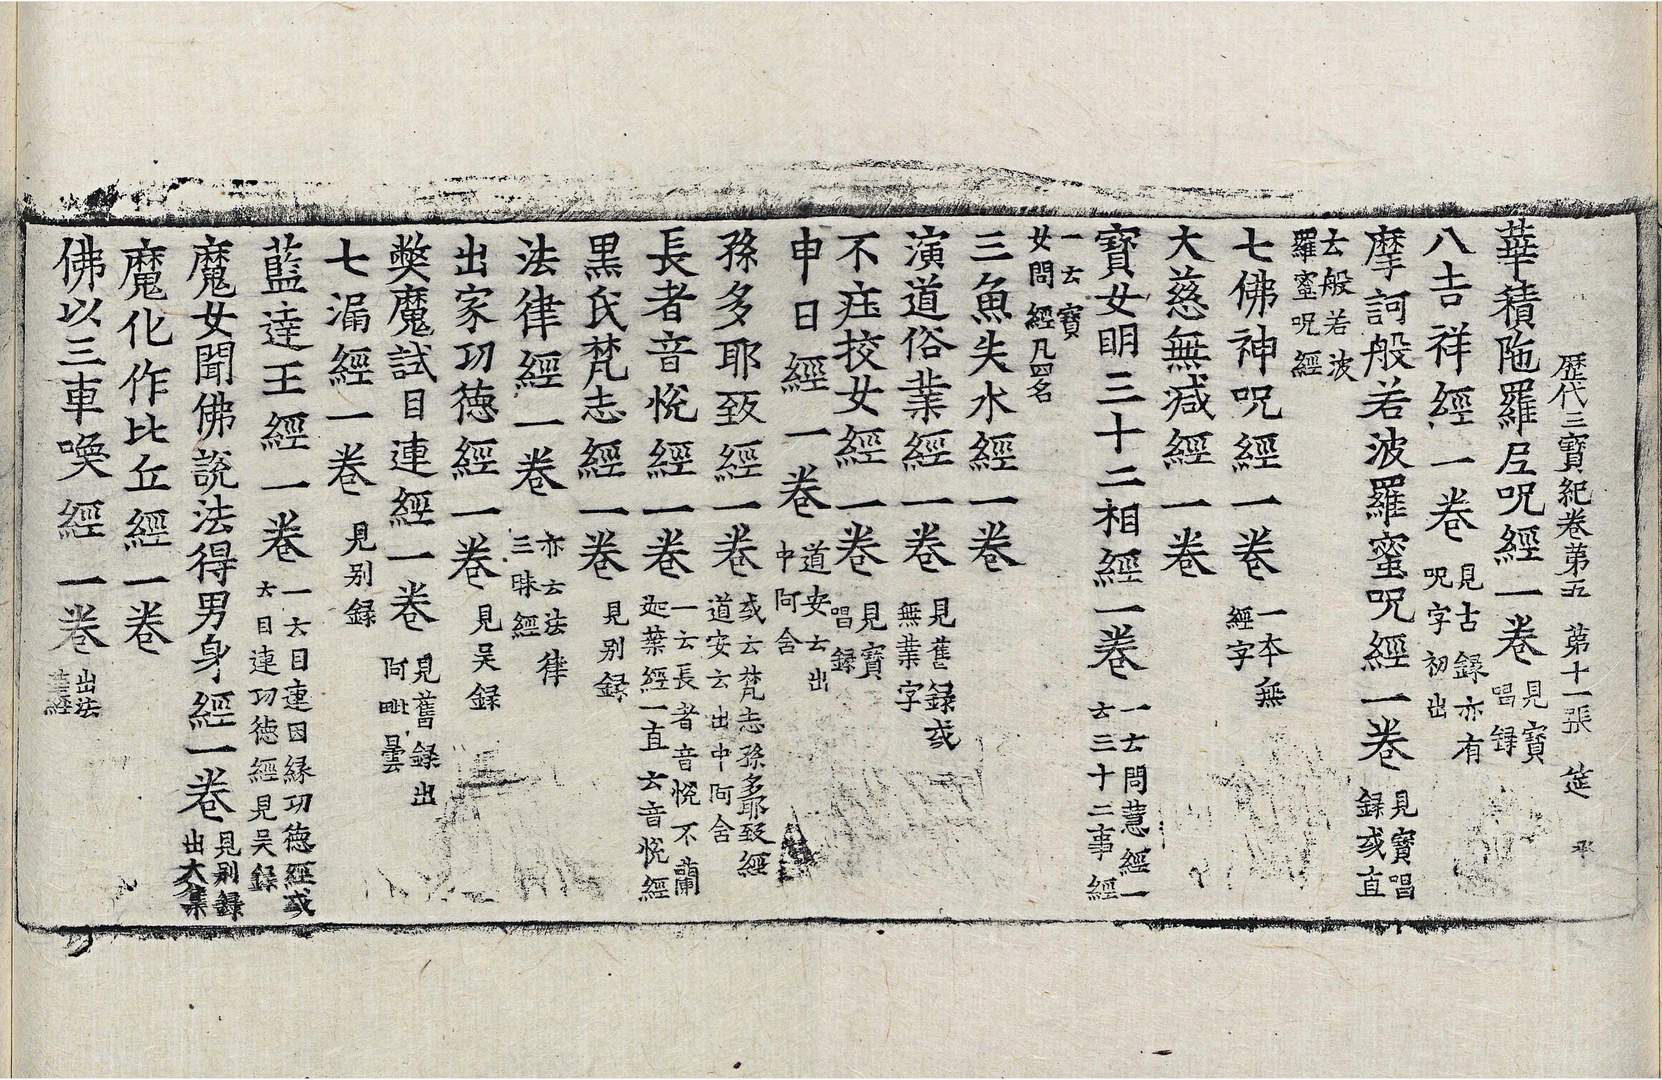 歷代三寶紀卷第五 第十一張 筵
華積陁羅尼呪經一卷 見寶唱録
八吉祥經一卷 見古録亦有呪字初出
摩訶般若波羅蜜呪經一卷 見寶唱録或直
云般若波羅蜜呪經
七佛神呪經一卷 一本無經字
大慈無減經一卷
寶女明三十二相經一卷 一云問慧經一云三十二事經
一云寶女問經凡四名
三魚失水經一卷
演道俗業經一卷 見舊録或無業字
不莊挍女經一卷 見寶唱録
申日經一卷 道安云出中阿含
孫多耶致經一卷 或云梵志孫多耶致經道安云出中阿含
長者音恱經一卷 一云長者音恱不蘭迦葉經一直云音恱經
黒氏梵志經一卷 見別録
法律經一卷 亦云法律三昧經
出家功德經一卷 見吴録
弊魔試目連經一卷 見舊録出阿毗曇
七漏經一卷 見別録
藍達王經一卷 一云目連因縁功德經或云目連功德經見吴録
魔女聞佛說法得男身經一卷 見別録出大集
魔化作比丘經一卷
佛以三車喚經一卷 出法華經